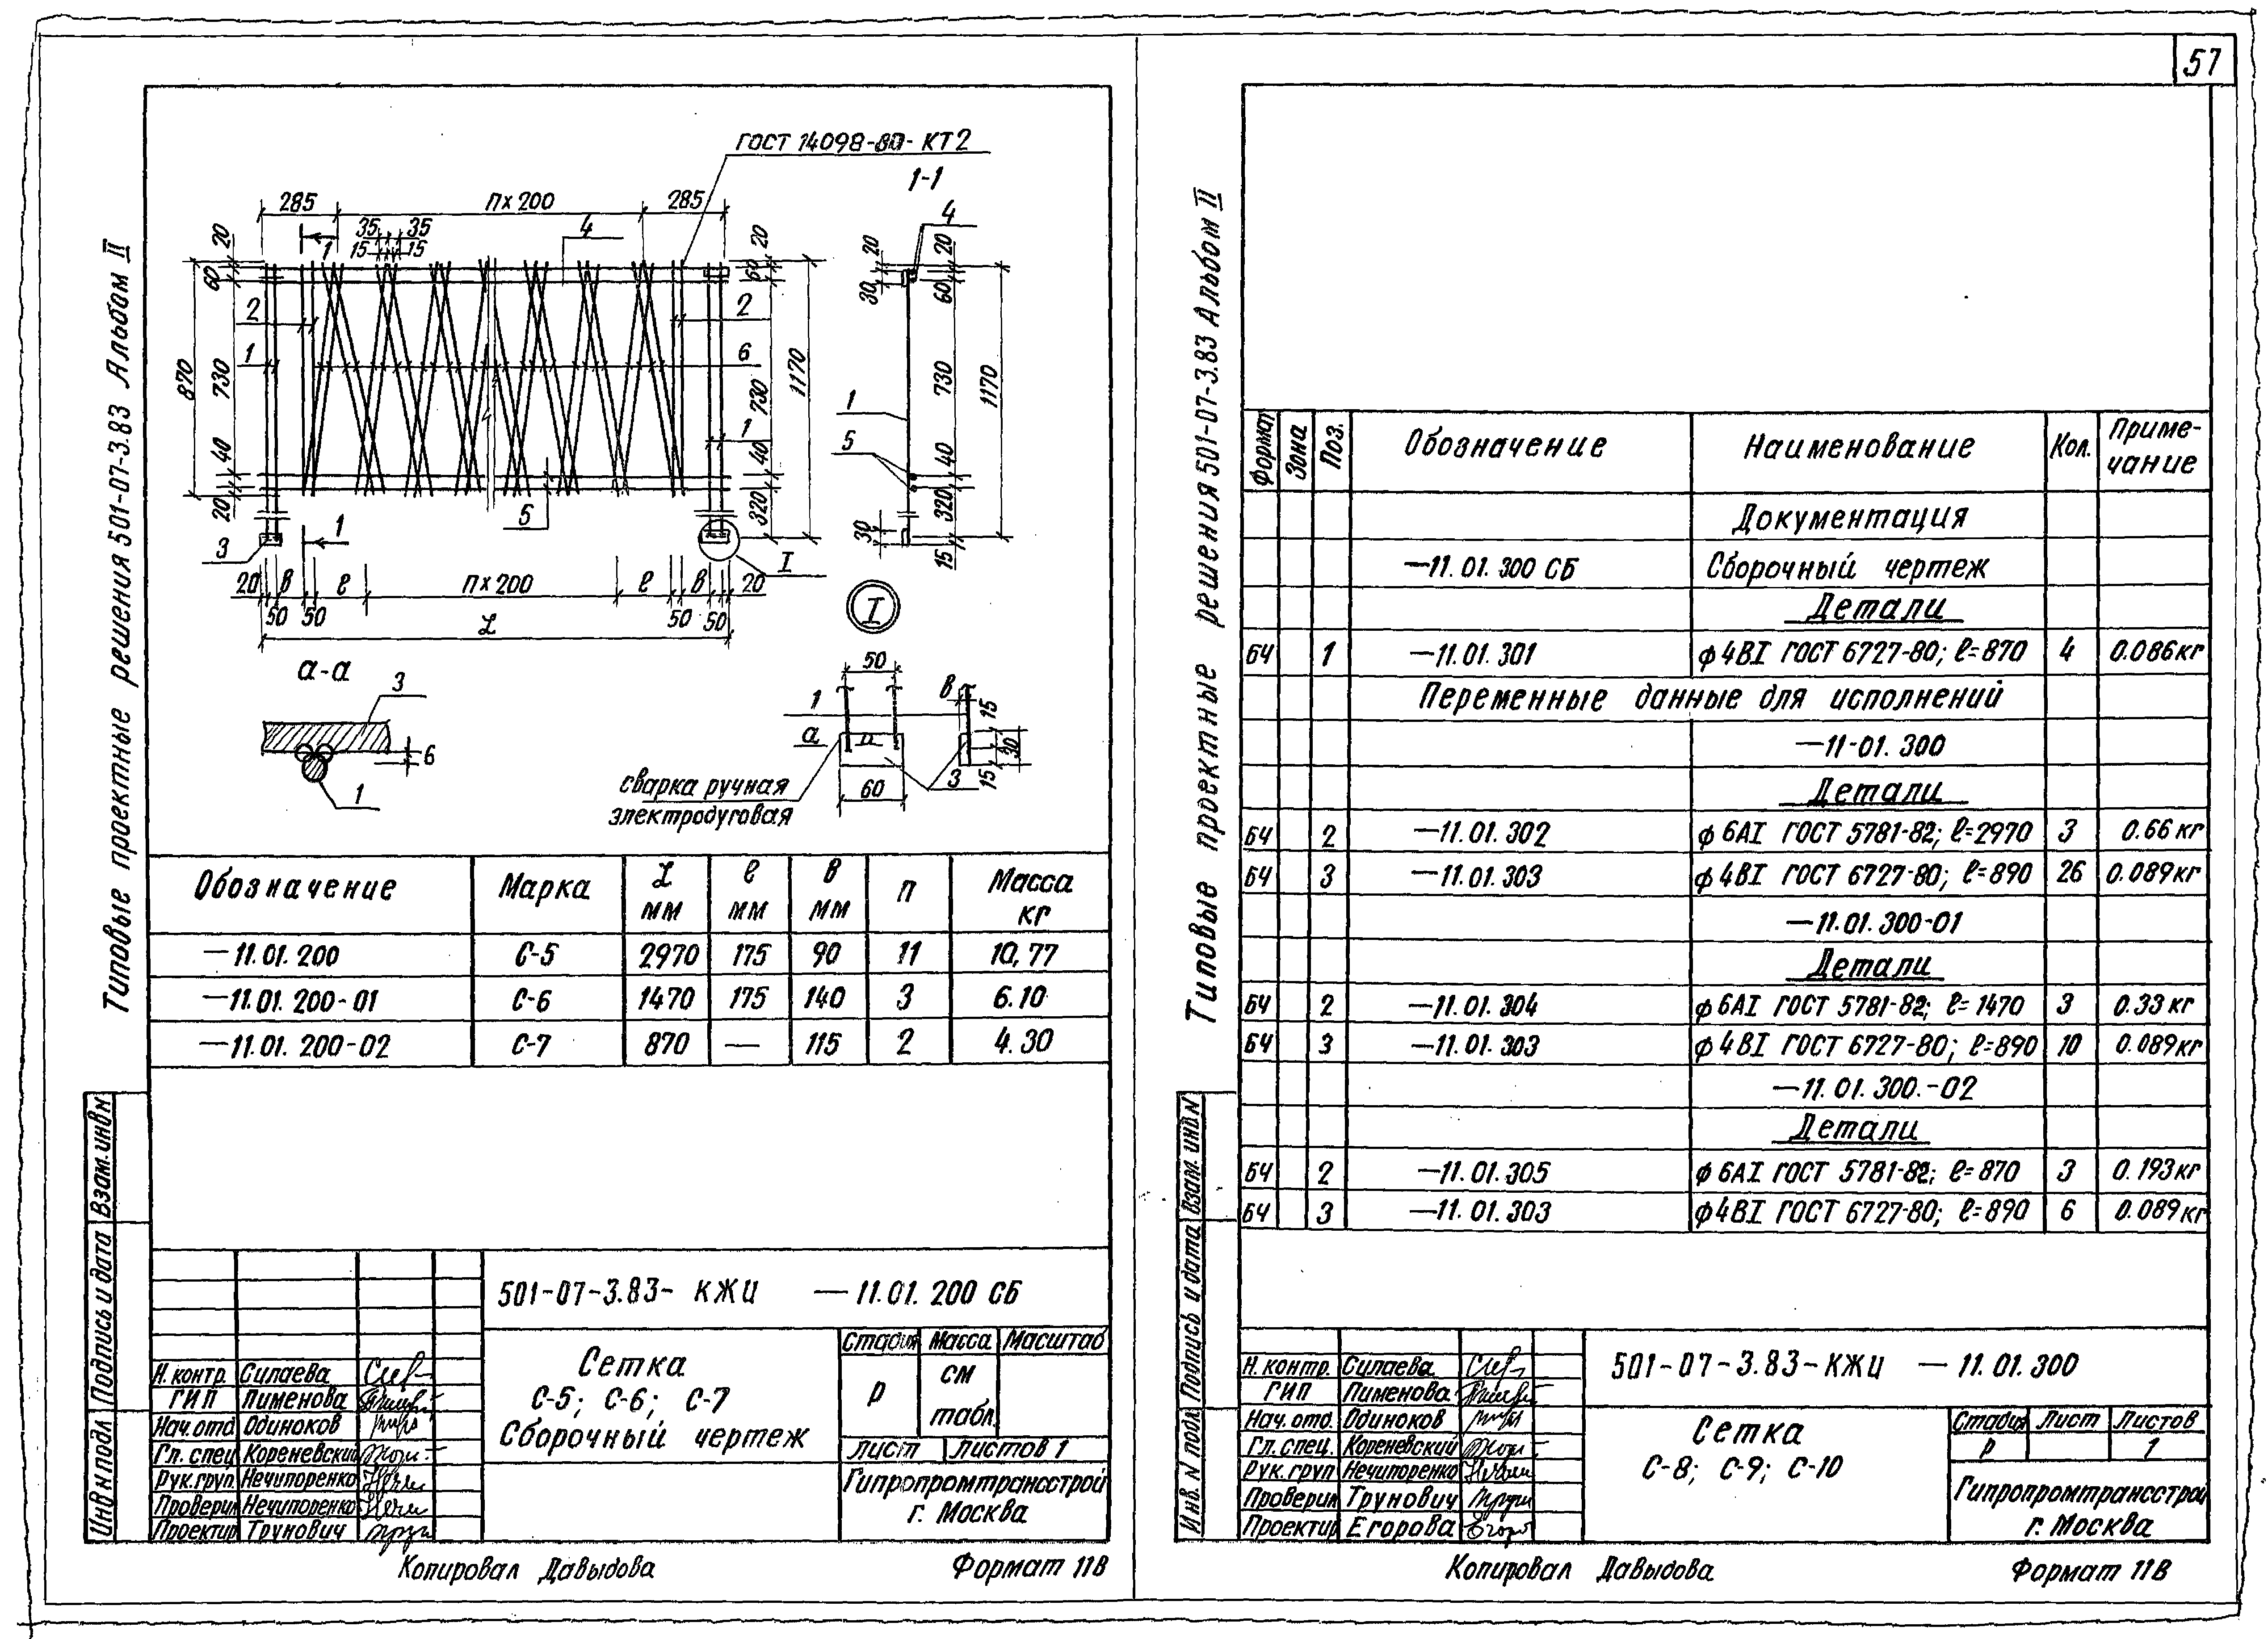 57
Типовые проектные решения 501-07-3.83 Альбом II
ГОСТ 14098-80-КТ2
1-1
285 п×200 285
35 35
15 15
4
1
20
60
870
730
40
20
2
1
2
6
1
5
3
1
I
20
60
730
40
320
1170
4
20
30
20
60
1
5
730
40
320
1170
30
15
20 в е п×200 е в 20
50 50 50 50
L
I
а-а
3
6
1
50
1
а
в
15
30
15
3
60
сварка ручная
электродуговая
Обозначение Марка L мм е мм в мм п Масса кг
—11.01.200 С-5 2970 175 90 11 10,77
—11.01.200-01 С-6 1470 175 140 3 6.10
—11.01.200-02 С-7 870 — 115 2 4.30
Взам. инв N
Подпись и дата
Инв N подл
501-07-3.83-КЖИ —11.01.200 СБ
Сетка
С-5; С-6; С-7
Сборочный чертеж
Стадия Масса Масштаб
Р см табл.
Лист Листов 1
Гипропромтрансстрой
г. Москва
Н.контр. Силаева
ГИП Пименова
Нач.отд Одиноков
Гл. спец Кореневский
Рук.груп. Нечипоренко
Проверил Нечипоренко
Проектир Трунович
Копировал Давыдова Формат 11В
Типовые проектные решения 501-07-3.83 Альбом II
Формат Зона Поз. Обозначение Наименование Кол. Примечание
Документация
—11.01.300 СБ Сборочный чертеж
Детали
БЧ 1 —11.01.301 ф4ВI ГОСТ 6727-80; е=870 4 0.086кг
Переменные данные для исполнений
—11-01.300
Детали
БЧ 2 —11.01.302 ф6АI ГОСТ 5781-82; е=2970 3 0.66кг
БЧ 3 —11.01.303 ф4ВI ГОСТ 6727-80; е=890 26 0.089кг
—11.01.300-01
Детали
БЧ 2 —11.01.304 ф6АI ГОСТ 5781-82; е=1470 3 0.33кг
БЧ 3 —11.01.303 ф4ВI ГОСТ 6727-80; е=890 10 0.089кг
—11.01.300.-02
Детали
БЧ 2 —11.01.305 ф6АI ГОСТ 5781-82; е=870 3 0.193кг
БЧ 3 —11.01.303 ф4ВI ГОСТ 6727-80; е=890 6 0.089кг
Взам. инв N
Подпись и дата
Инв. N подл
501-07-3.83-КЖИ —11.01.300
Сетка
С-8; С-9; С-10
Стадия Лист Листов
Р 1
Гипропромтрансстрой
г. Москва
Н.контр. Силаева
ГИП Пименова
Нач. отд. Одиноков
Гл. спец. Кореневский
Рук.груп Нечипоренко
Проверил Трунович
Проектир Егорова
Копировал Давыдова Формат 11В